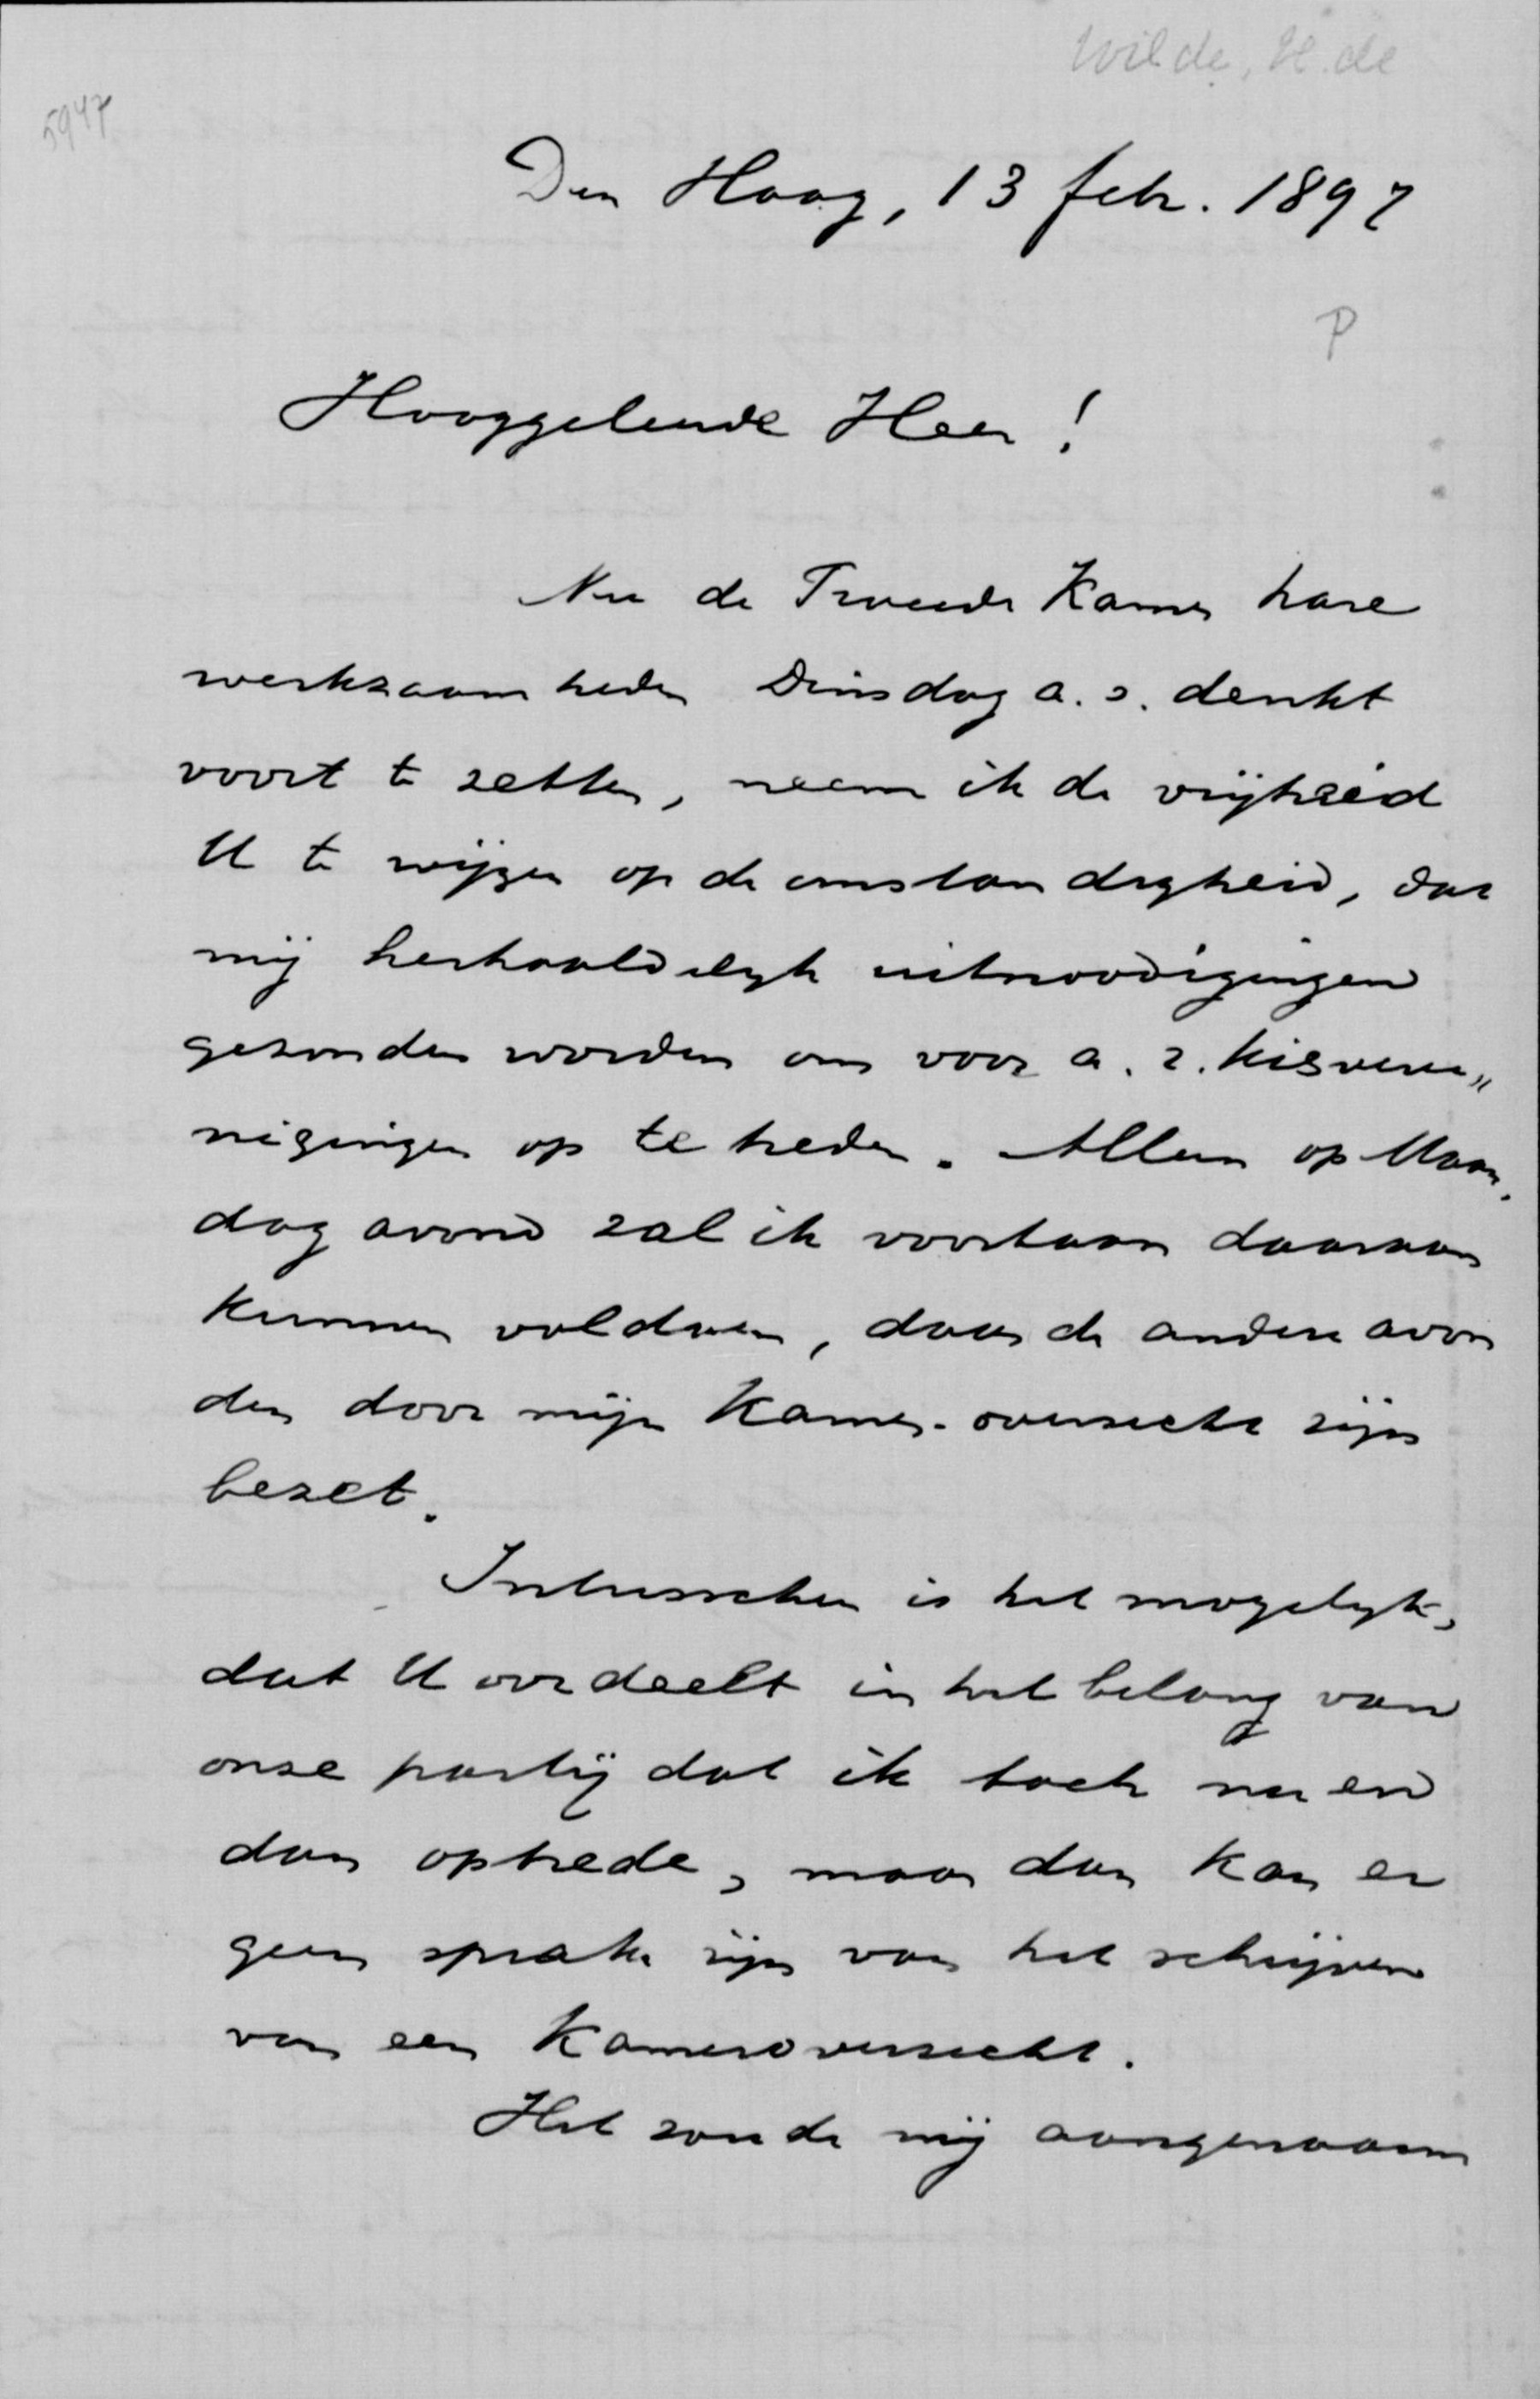 Wilde, H. de
5947
Den Haag, 13 febr. 1897
P
Hooggeleerde Heer!
Nu de Tweede Kamer hare
werkzaamheden Dinsdag a.s. denkt
voort te zetten, neem ik de vrijheid
U te wijzen op de omstandigheid, dat
mij herhaaldelijk uitnoodigingen
gezonden worden om voor a.r. kiesveree„
nigingen op te treden. Alleen op Maan„
dag avond zal ik voortaan daaraan
kunnen voldoen, daar de andere avon
den door mijn Kamer-overzicht zijn
bezet.
Intusschen is het mogelijk,
dat U oordeelt in het belang van
onze partij dat ik toch nu en
dan optrede, maar dan kan er
geen sprake zijn van het schrijven
van een Kameroverzicht.
Het zou de mij aangenaam